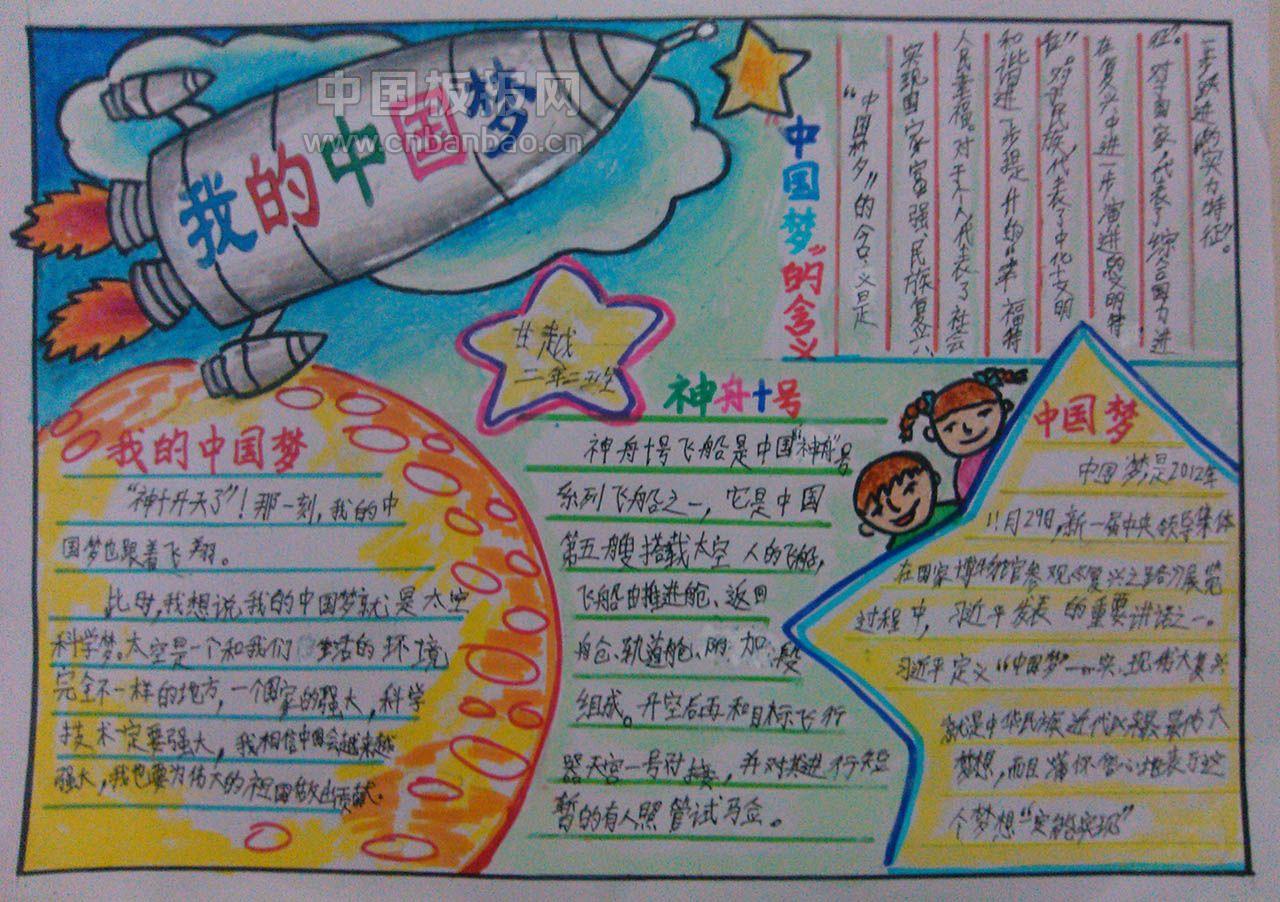 中国板报网
www.cnbanbao.cn
我的中国梦
“中国梦”的含义
“中国梦”的含义是
实现国家富强、民族复兴、
人民幸福。对于个人,代表了社会
和谐进一步提升的“幸福特
征”。对于民族,代表了中华文明
在复兴中进一步演进的“文明特
征”。对于国家,代表了综合国力进
一步跃进的“实力特征”。
甘越
二年二班
我的中国梦
“神十升天了”！那一刻，我的中
国梦也跟着飞翔。
此时，我想说，我的中国梦就是太空
科学梦。太空是一个和我们生活的环境
完全不一样的地方，一个国家的强大，科学
技术一定要强大，我相信中国会越来越
强大，我也要为伟大的祖国做出贡献.
神舟十号
神舟十号飞船是中国“神舟”号
系列飞船之一，它是中国
第五艘搭载太空人的飞船，
飞船由推进舱、返回
舱、轨道舱、附加段
组成。升空后再和目标飞行
器天宫一号对接，并对其进行短
暂的有人照管试
中国梦
中国梦，是2012年
11月29日，新一届中央领导集体
在国家博物馆参观《复兴之路》展览
过程中，习近平发表的重要讲话之一。
习近平定义“中国梦”——实现伟大复兴
就是中华民族近代以来最伟大
梦想，而且满怀信心地表示这
个梦想“定能实现”